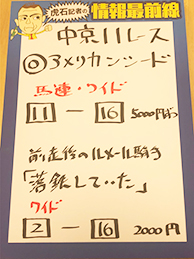 虎石記者の
情報最前線
中京11レース
◎アメリカンシード
馬連・ワイド
11 － 16 5000円ずつ
前走後のルメール騎手
「落鉄していた」
ワイド
2 － 16 2000円